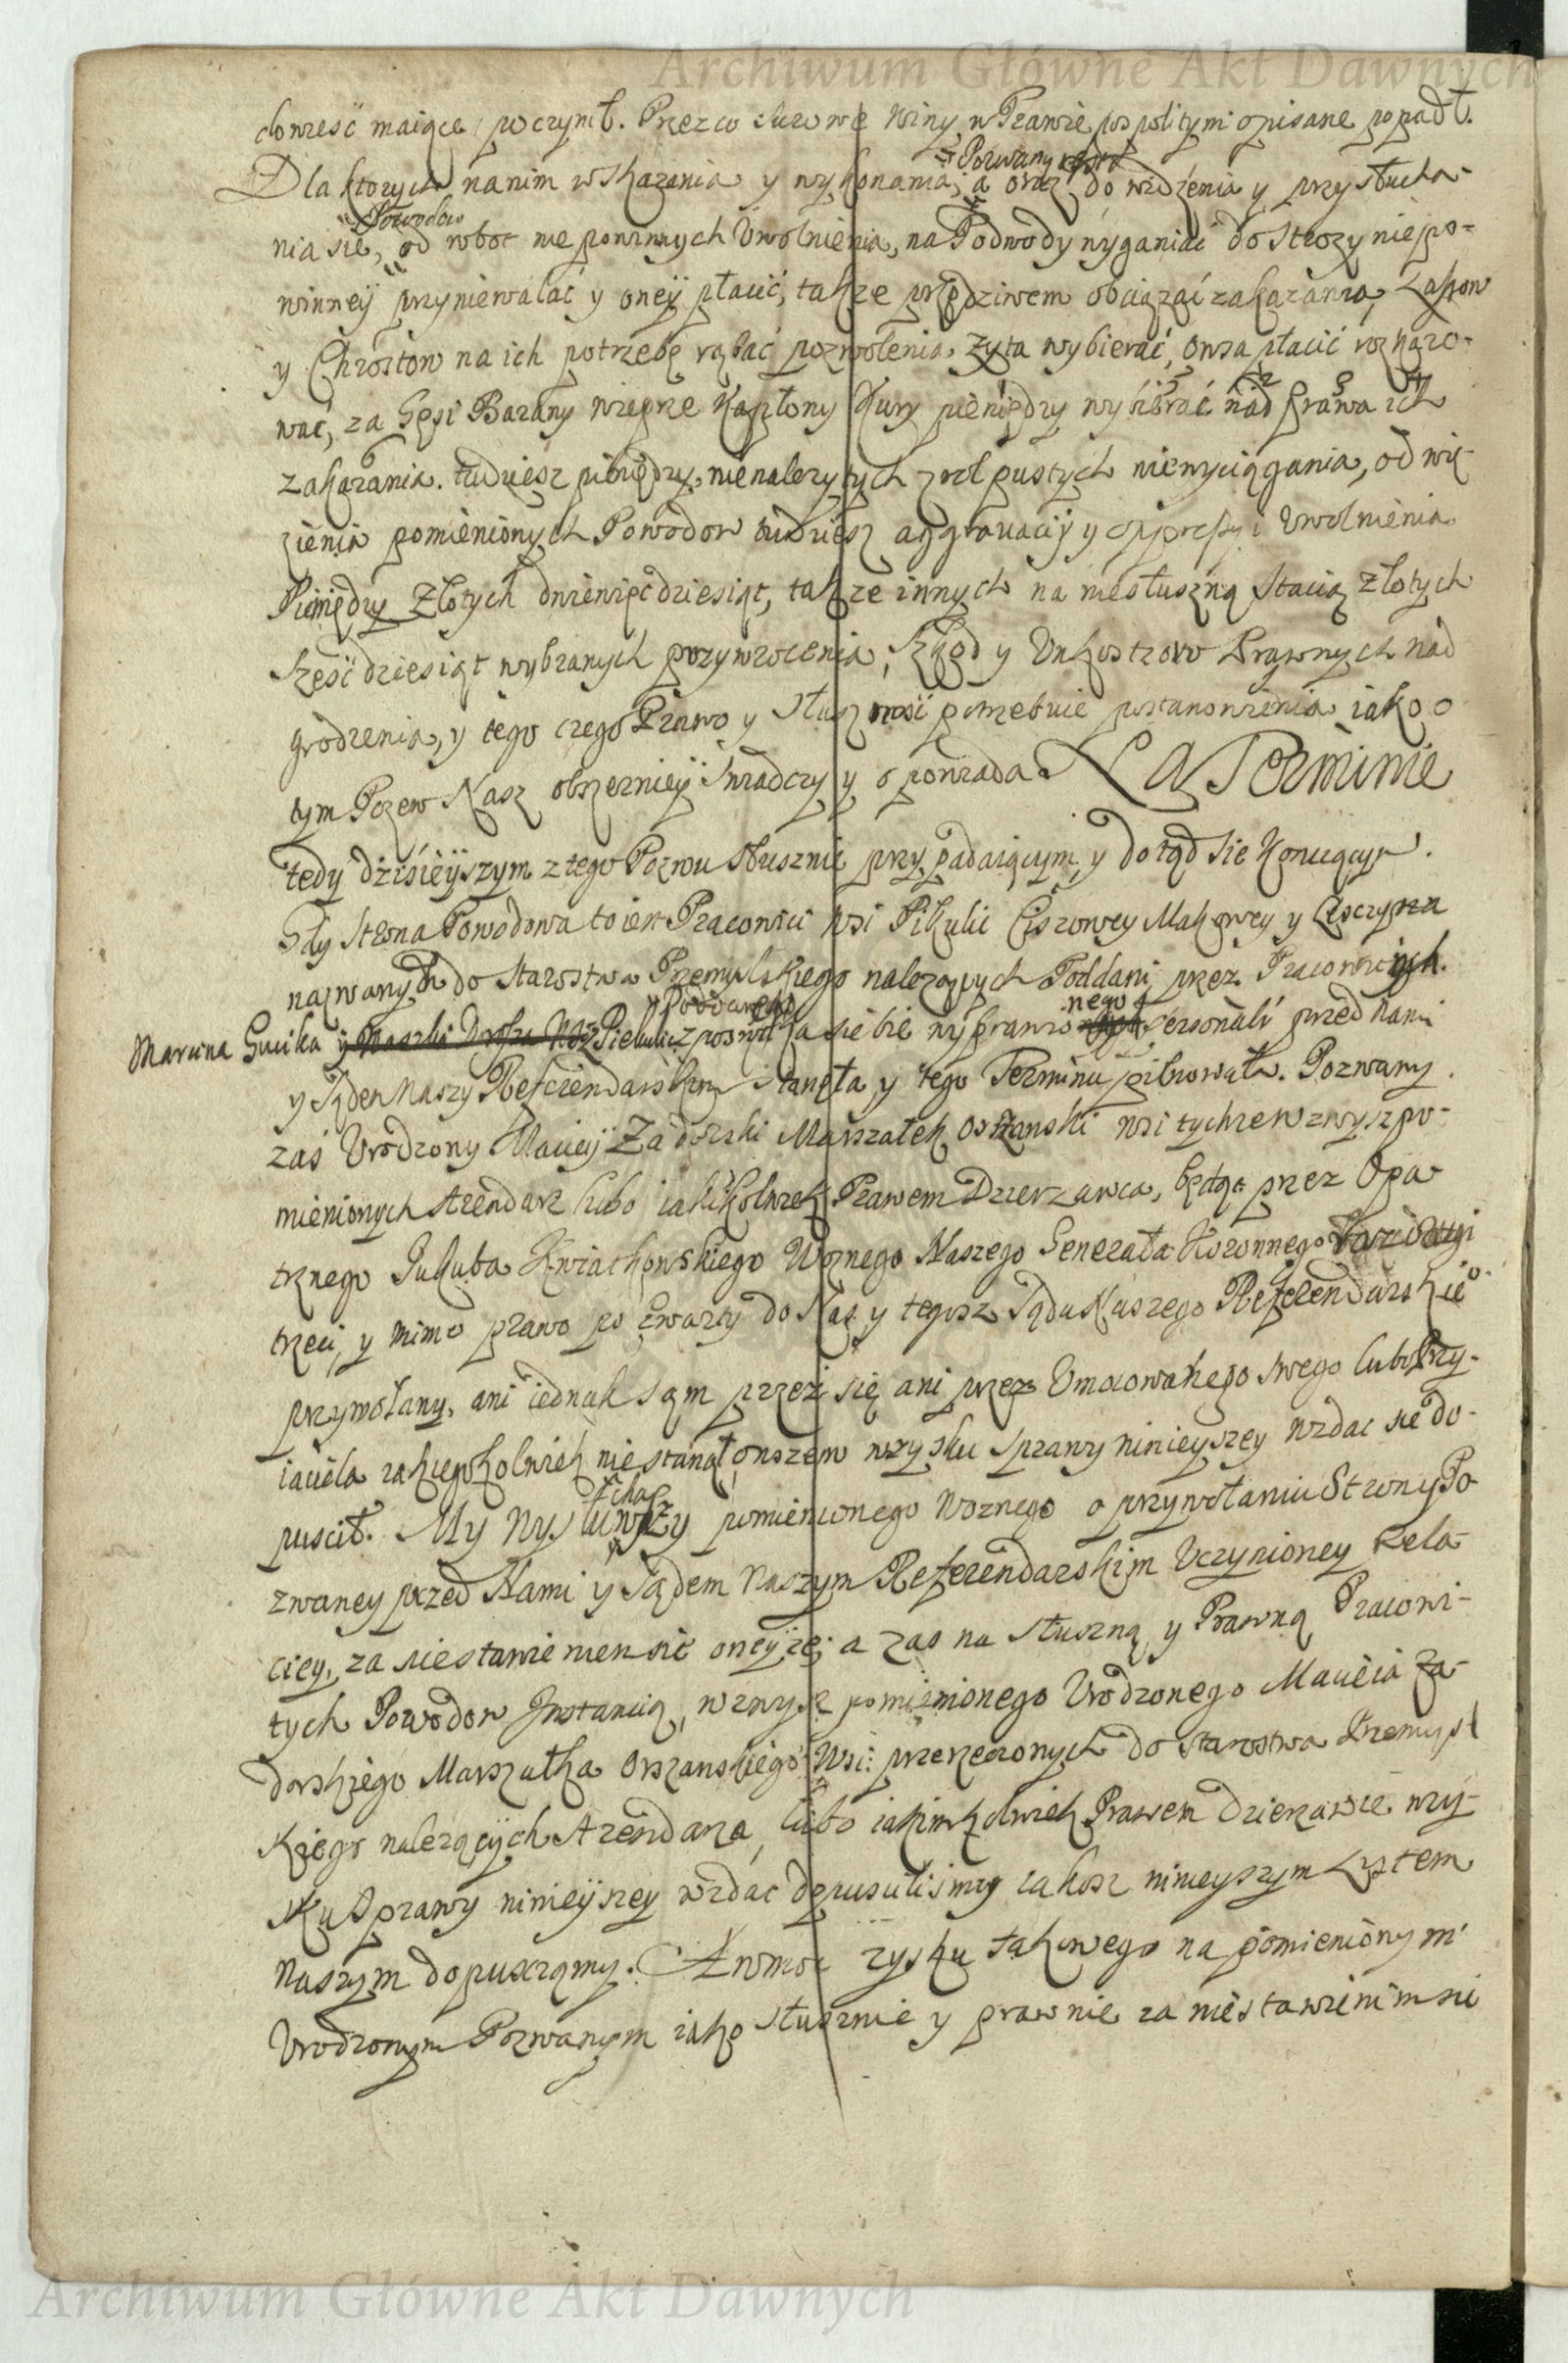 Archiwum Główne Akt Dawnych
donieść maiące poczynił. Przez co surowe winy w Prawie pospolitym opisane popadł.
Dla ktorych na nim wskazania y wykonania, a oraz Pozwany do widzenia y przysłucha-
nia sie, Powodow od robot nie powinnych Uwolnienia, na Podwody wyganiać do Strozy niepo-
winney przyniewalać y oney płacić, takze przędziwem obciązać zakazania, Łapow
y Chrostow na ich potrzebę rąbać pozwolenia, zyta wybierać, owsa płacić roskazo-
wać, za Gęsi Barany wieprze Kapłony Kury pieniędzy wybierać nad prawa ich
zakazania. tudziesz pieniędzy nienalezytych z rol pustych niewyciągania, od wię-
zienia pomienionych Powodow tudziesz aggrawacij y oppressyi Uwolnienia
Pieniędzy Złotych dwiewięcdziesiąt, takze innych na niesłuszną Stacią złotych
sześćdziesiąt wybranych przywrocenia, Szkod y Unkosztow Prawnych nad
grodzenia, y tego czego Prawo y słusznosć potrzebuie postanowienia iako o
tym Pozew Nasz obszerniey Swiadczy y opowiada. Na Terminie
tedy dzisieyszym z tego Pozwu słusznie przypadaiącym y dotąd sie konczącym.
Gdy Strona Powodowa to iest Pracowici wsi Pikulic Ciszowey Makowey y
nazwanych do Starostwa Przemyslskiego nalezących Poddani przez Pracowitych.
Marcina Gucika y z Poddanego za siebie wyprawionego personalr przed Nami
y Sądem Naszym Referendarskim stanęła y tego Terminu pilnowała. Pozwany
zaś Urodzony Maciey Zadorski Marszałek Orszanski wsi tychze wzwysz po-
mienionych Arendarz lubo iakikolwiek Prawem Dzierzawca, będąc przez Opa
trznego Jakuba Kwiatkowskiego Woznego Naszego Generała Koronnego
trzeci, y mimo prawo po czwarty do Nas y tegosz Sądu Naszego Referendarskie°
przywołany, ani iednak sam przez się ani przez Umocowanego swego lub Przy-
iaciela iakiegokolwiek nie stanął, owszem w zysku Sprawy ninieyszey wzdac sie do-
puscił. My Wysłuchawszy pomienionego Woznego o przywołaniu Strony Po
zwaney przed Nami y Sądem Naszym Referendarskim Uczynioney Rela-
ciey, za niestaniem sie oneyze, a zas na słuszną y Prawną Pracowi-
tych Powodow Instancią, wzwysz pomienionego Urodzonego Macieia Za-
dorskiego Marszałka Orszanskiego Wsi przerzeczonych do Starostwa Przemysl
skiego nalezących Arendarza, lubo iakimkolwiek Prawem dzierzawce w zy-
sku Sprawy ninieyszey wzdac dopuscilismy iakosz ninieyszym Lystem
Naszym dopusczamy. A w moc zysku takowego na pomienionym
Urodzonym Pozwanym iako słusznie y prawnie za niestawieniem sie
Archiwum Główne Akt Dawnych